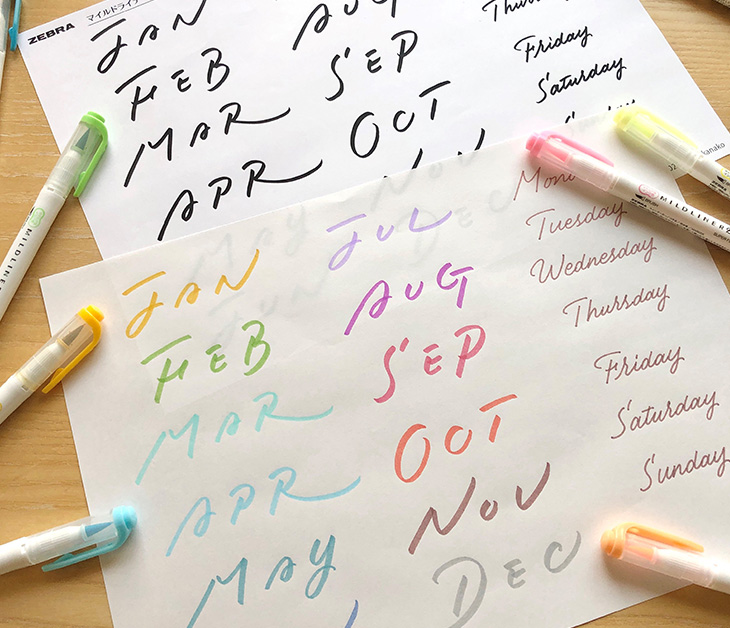 ZEBRA マイルドライナー
JAN
AUG
FEB
SEP
Friday
MAR
OCT
Saturday
APR
NOV
kanako
JAN
JUL
Tuesday
FEB
AUG
Wednesday
MAR
SEP
Thursday
APR
OCT
Friday
MAY
NOV
Saturday
DEC
Sunday
MILDLINER
MILDLINER